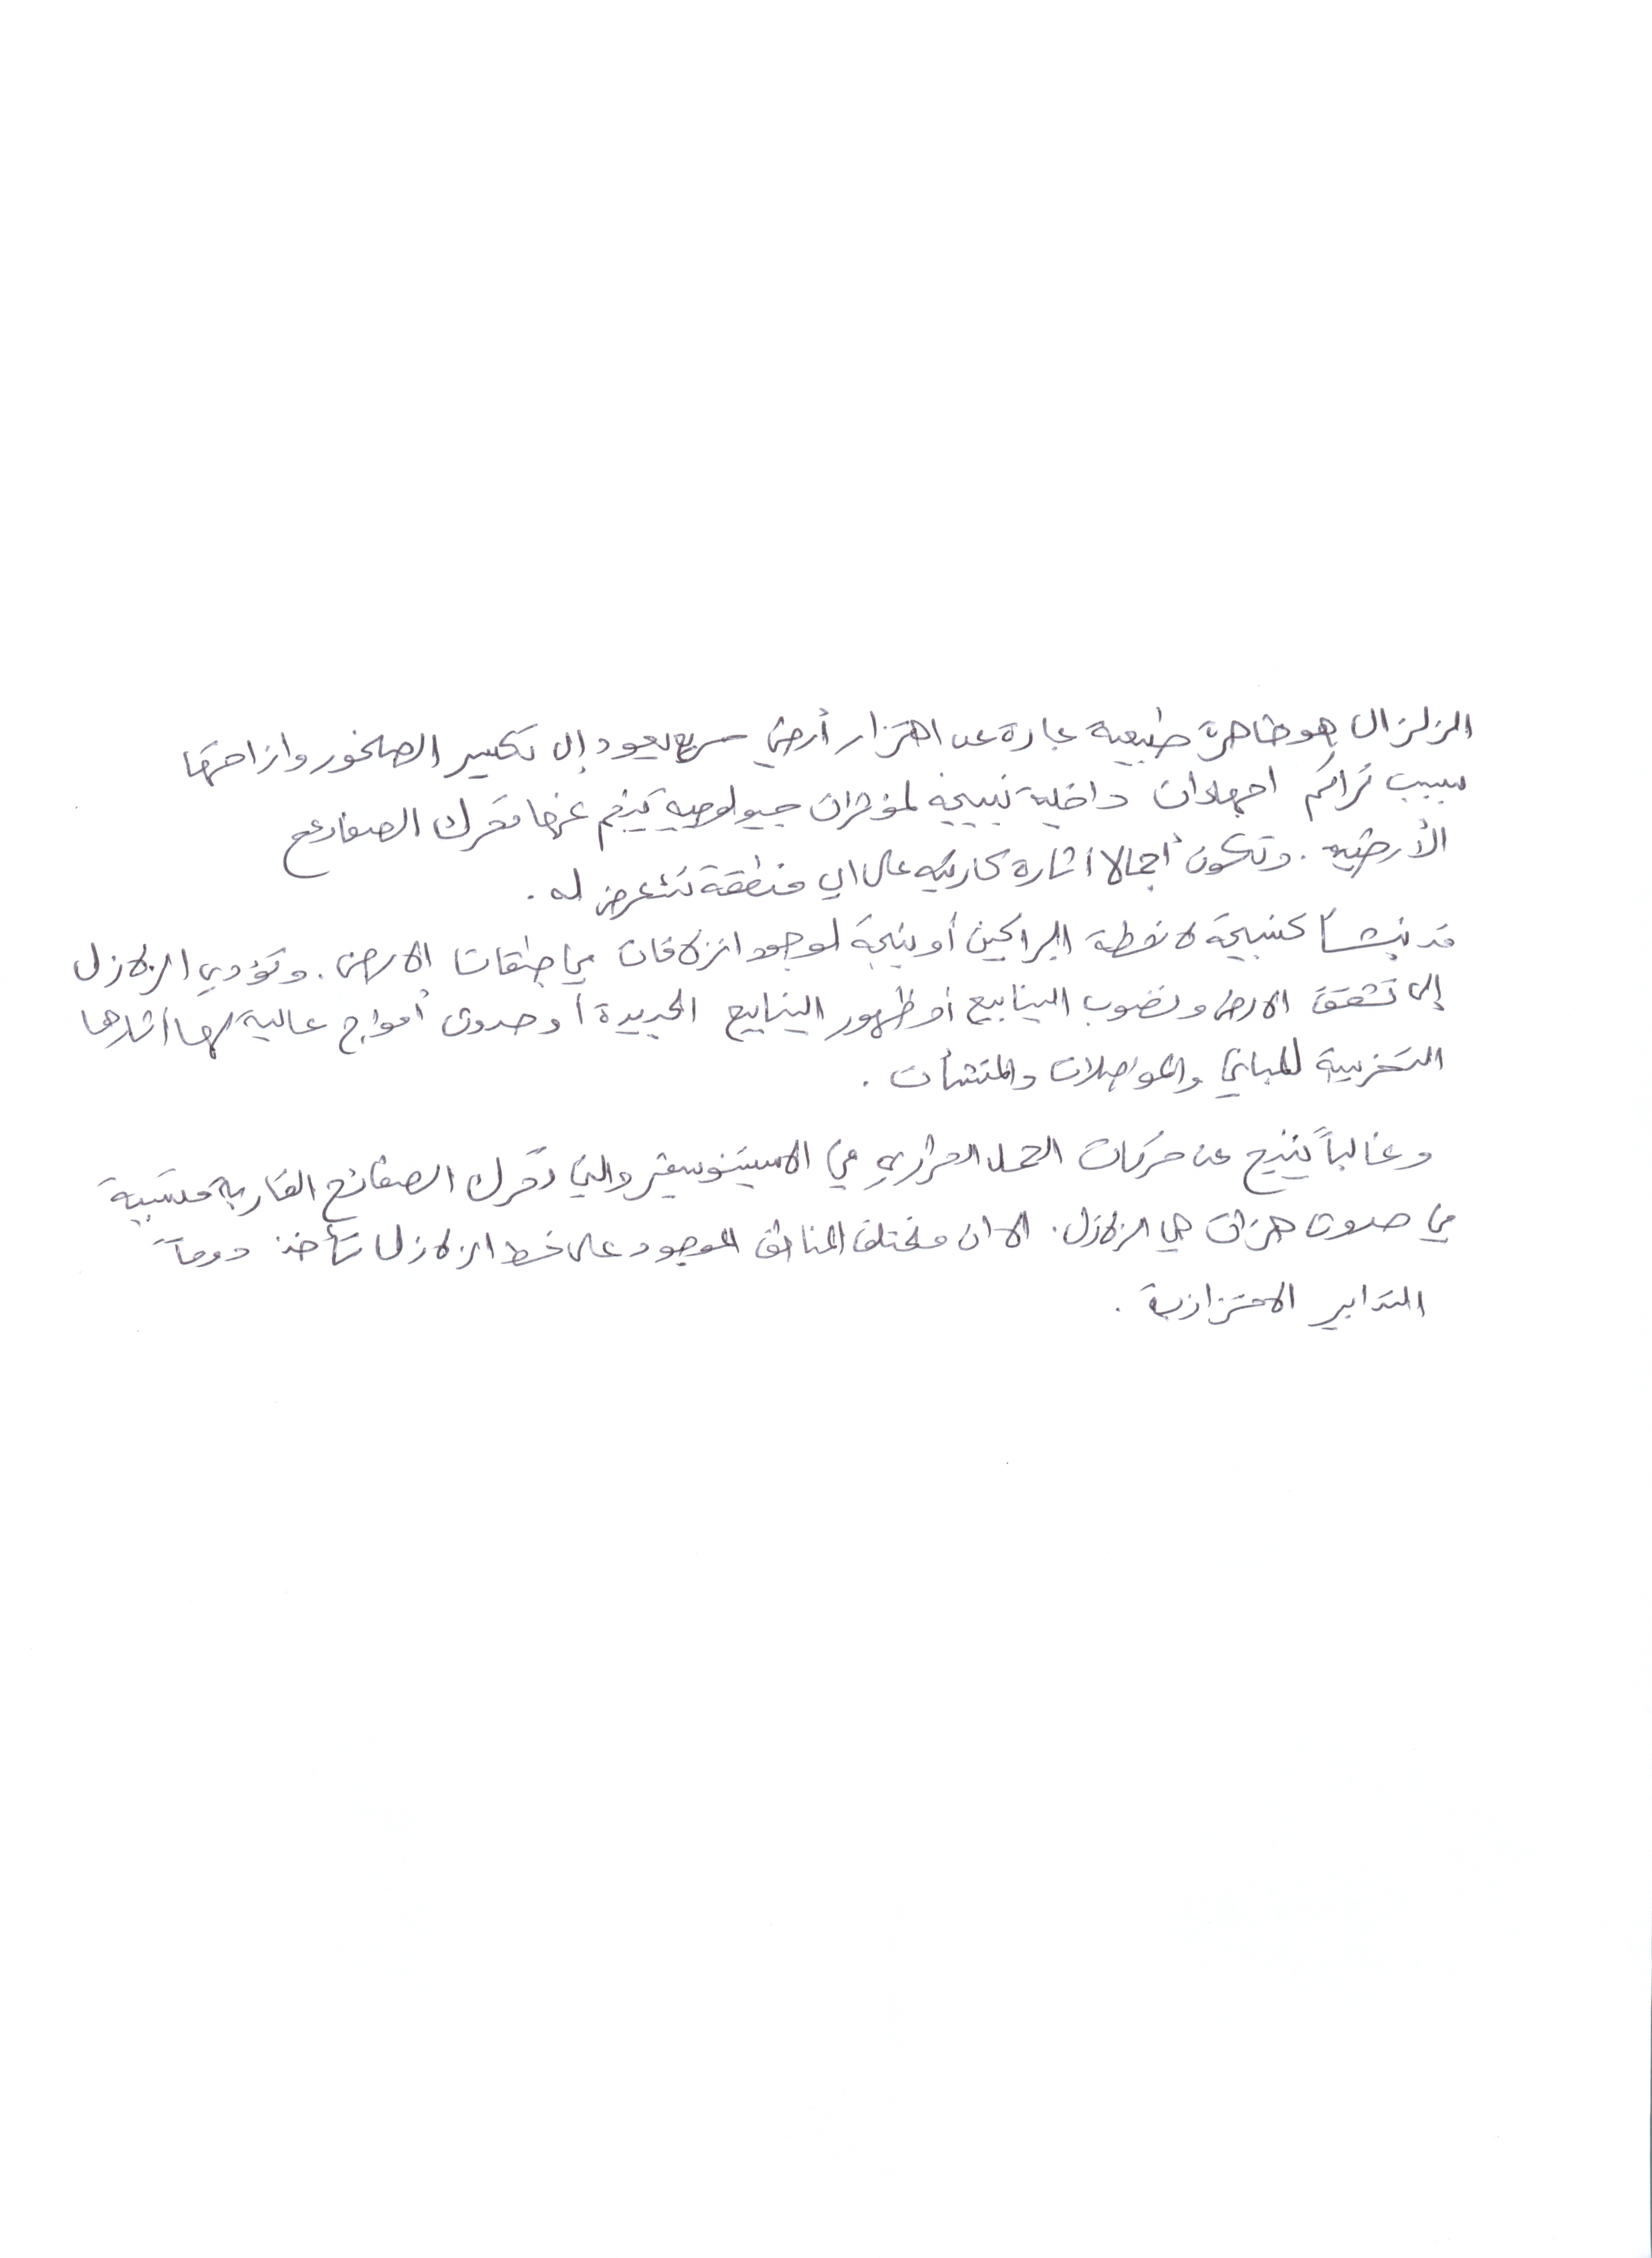 الزلزال هو ظاهرة طبيعية عبارة عن اهتزاز أرضي سريع يعود إلى تكسير الصخور وازاحتها
بسبب تراكم اجهادات داخلية نتيجة لمؤثرات جيولوجية ينجم عنها تحرك الصفائح
الأرضية . وتكون أجمالا اثاره كارثية على اي منطقة تتعرض له .
قد ينشأ كنتيجة لانشطة البراكين أو نتيجة لوجود انزلاقات في طبقات الارض . وتؤدي الزلازل
إلى تشقق الارض ونضوب الينابيع أو ظهور الينابيع الجديدة أو حدوث أمواج عالية لها أثارها
التخريبية للمباني والمواصلات والمنشأت .
وغالباً ينتج عن حركات الحمل الحراري في الاسينوسفير والتي تحرك الصفائح القارية متسببة
في حدوث هزات هي الزلازل . الا ان مختلف المناطق الموجود على خط الزلازل تأخذ دوماً
التدابير الاحترازية .